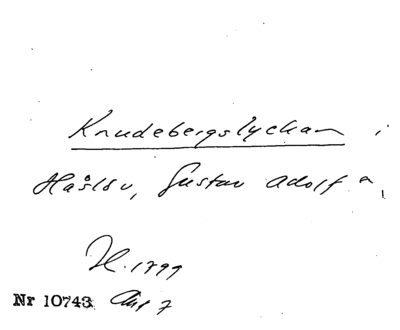 Knudebergslyckan i
Håslöv, Gustav Adolf
H. 1799
Nr 10743